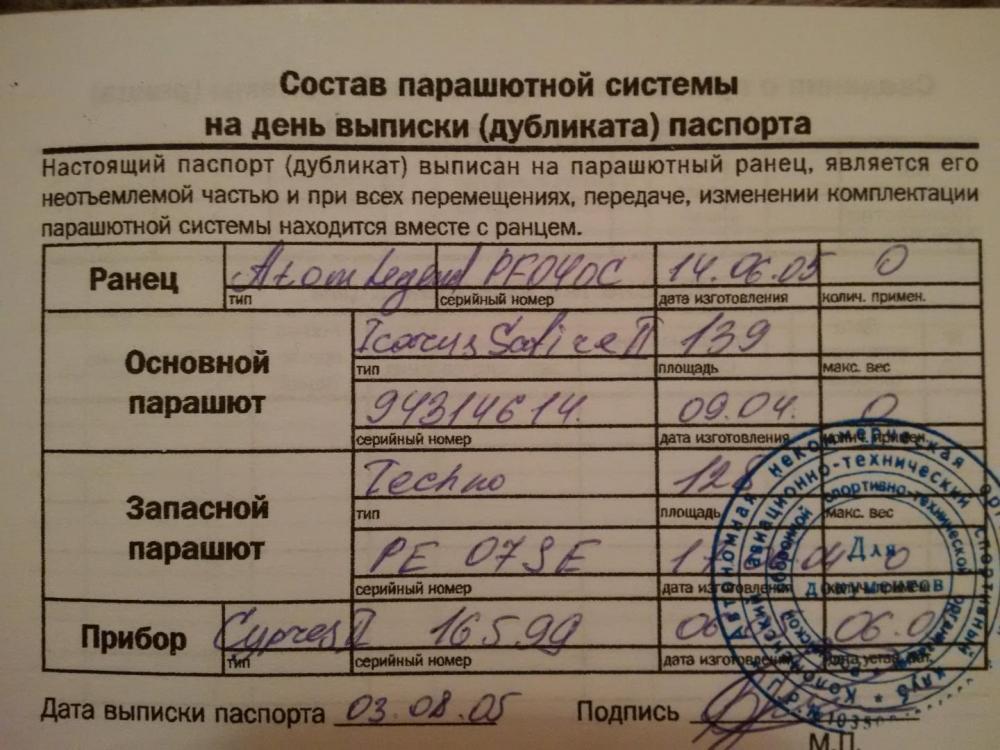 Состав парашютной системы
на день выписки (дубликата) паспорта
Настоящий паспорт (дубликат) выписан на парашютный ранец, является его
неотъемлемой частью и при всех перемещениях, передаче, изменении комплектации
парашютной системы находится вместе с ранцем.
Ранец Atom Legend PF040C 14.06.05 0
тип серийный номер дата изготовления колич. примен.
Основной парашют
Icarus Safire II 139
тип площадь макс. вес
94314614. 09.04. 0
серийный номер дата изготовления колич. примен.
Запасной парашют
Techno 128
тип площадь макс. вес
PE 079E 0
серийный номер дата изготовления
Прибор Cypres II 16599
тип серийный номер дата изготовления
Дата выписки паспорта 03.08.05 Подпись
М.П.
Автономная некоммерческая
авиационно-технический спортивный клуб
спортивно-технической
Для
документов